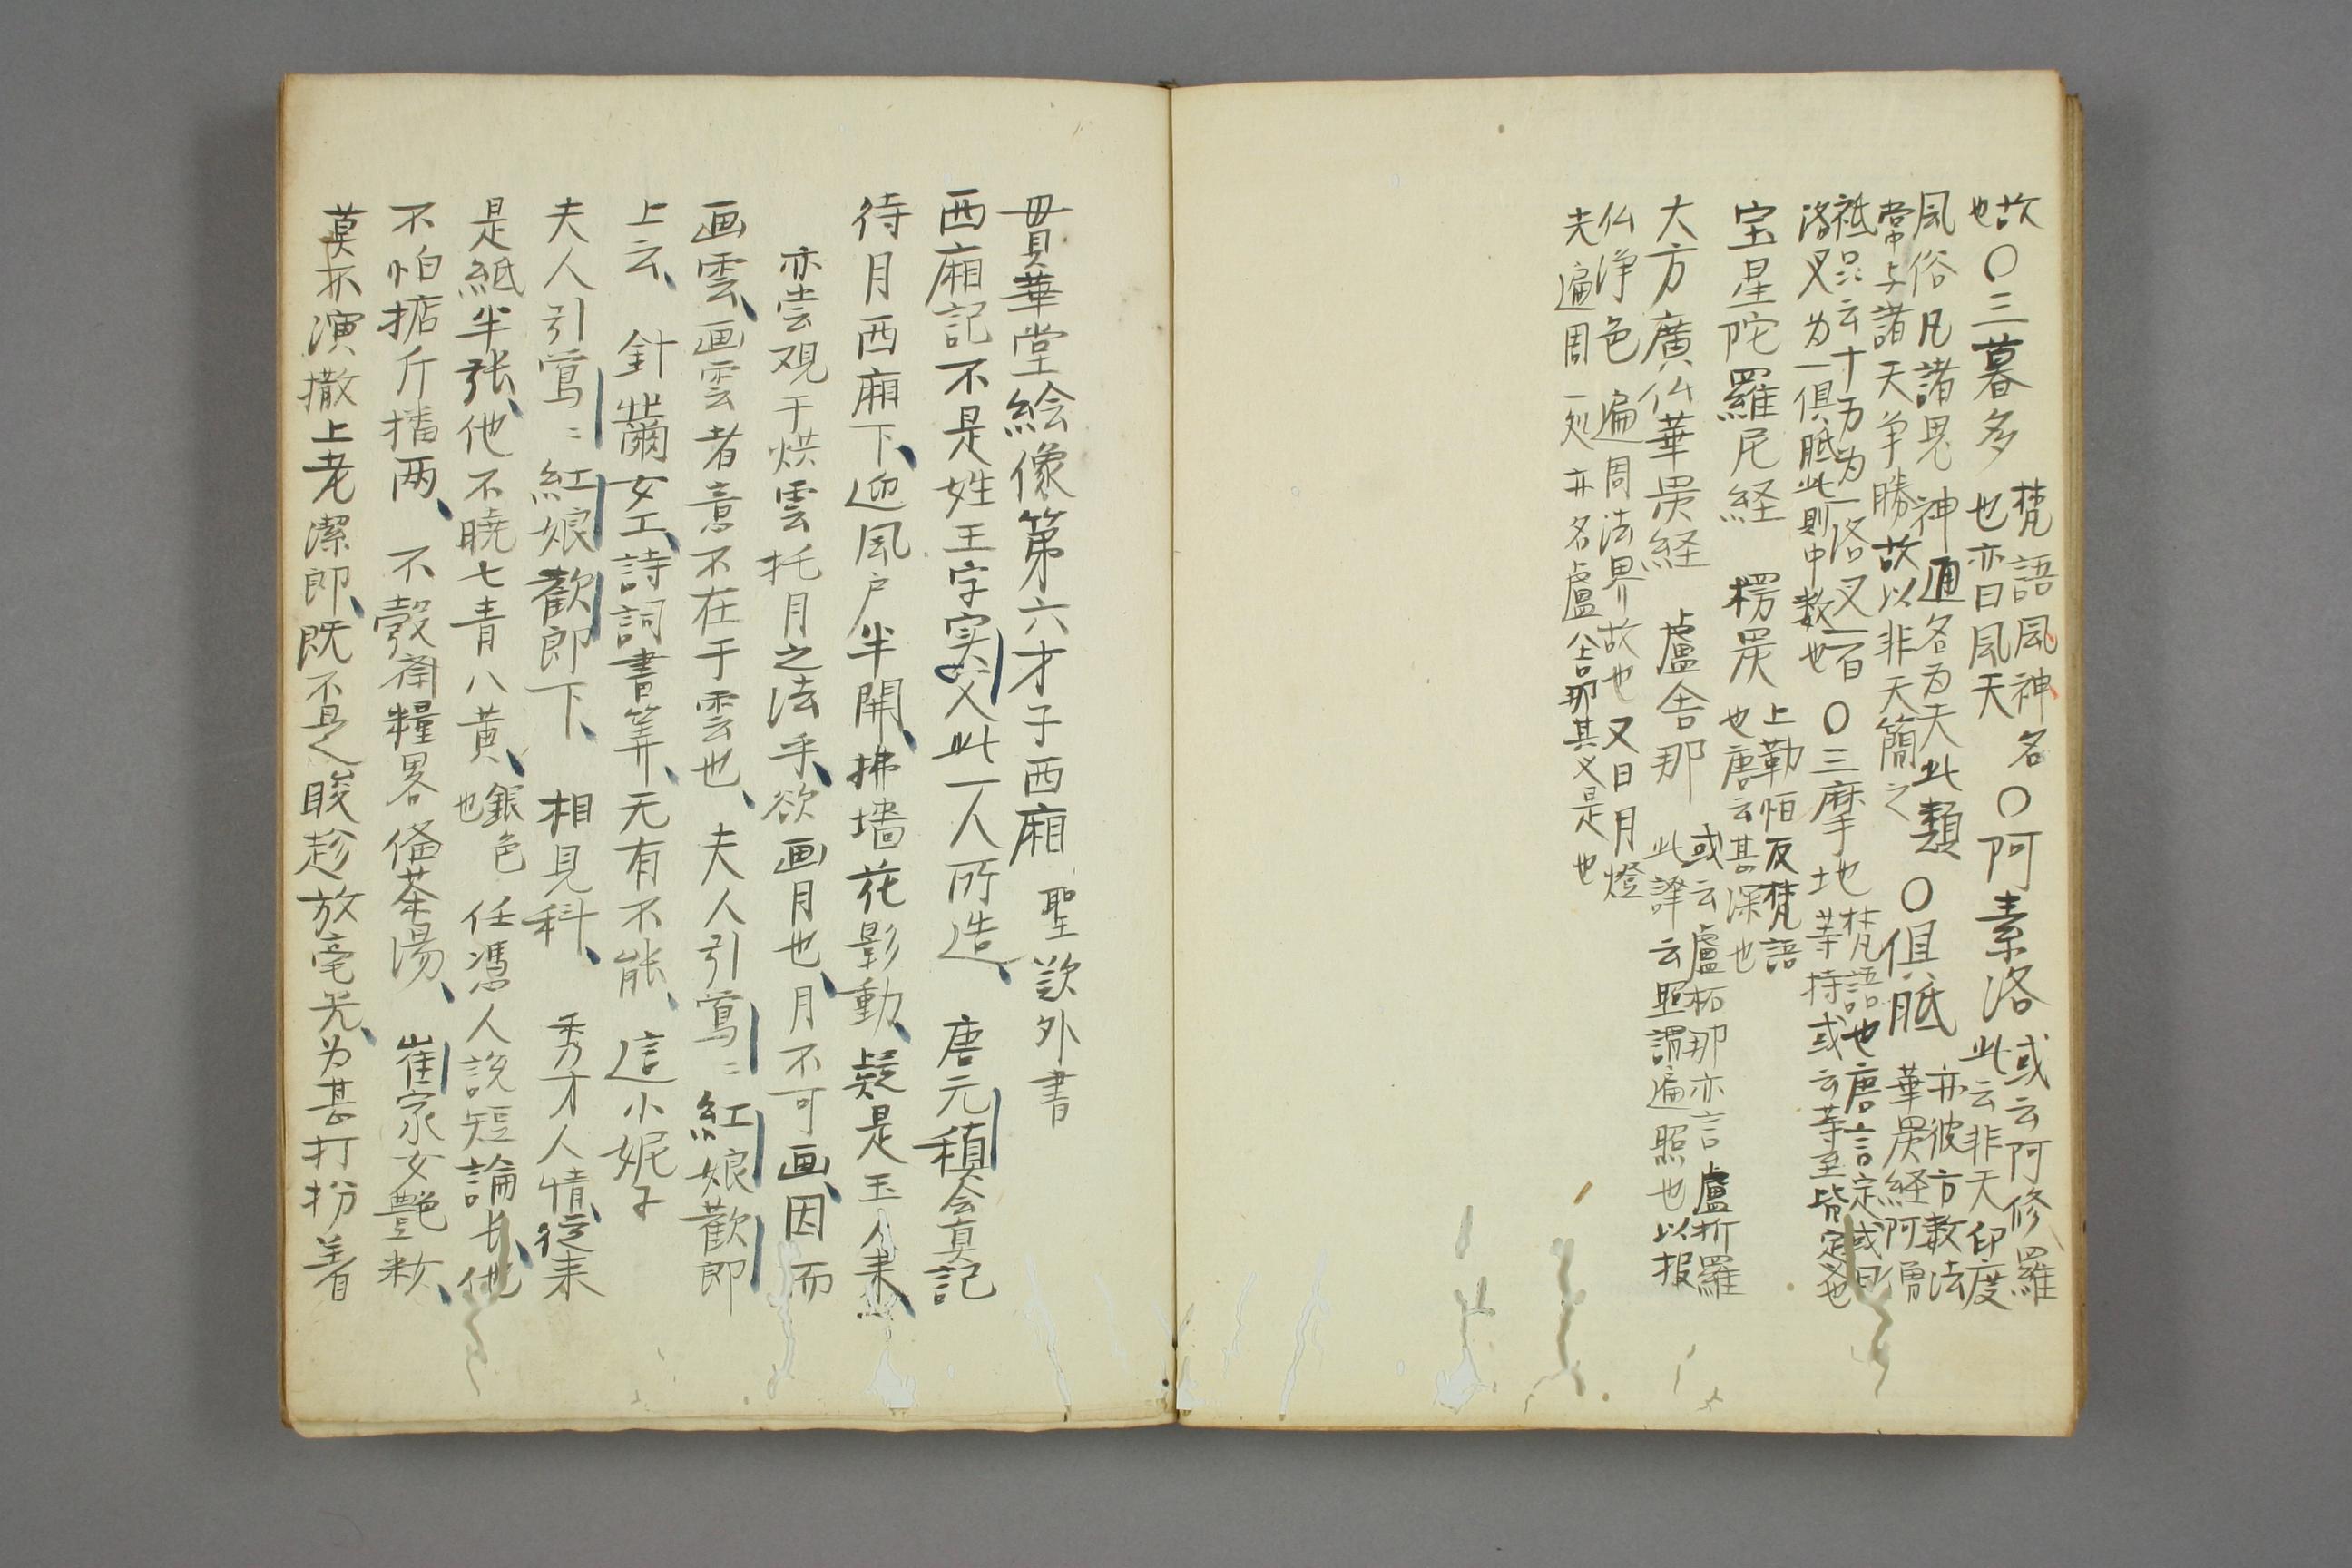 故也〇三暮多 梵語風神名也亦曰風天 〇阿素洛 或云阿修羅此云非天印度
風俗凡諸鬼神通名为天此類常与諸天争勝故以非天簡之 〇俱胝 亦彼方数法華厳経阿僧
祇品云十万为一洛又一百洛又为一俱胝此則中数也 〇三摩地 梵語也唐言定或曰等持或云等至皆定也
宝星陀羅尼経 楞炭 上勒怛反梵語也唐云甚深也
大方廣仏華炭経 盧舍那 或云盧柘那亦言盧折羅此譯云照謂遍照也以报
仏浄色遍周法界故也又日月燈
夫遍周一処亦名盧舍那其义是也
貫華堂絵像第六才子西廂 聖歎外書
西廂記不是姓王字実父此一人所造、 唐元稹会真記
待月西廂下、迎風户半開、拂墻花影動、疑是玉人来、
亦嘗观于烘雲托月之法乎、欲画月也、月不可画、因而
画雲、画雲者意不在于雲也、 夫人引鶯〻紅娘歡郎
上云、 針黹女工、詩詞書筭、无有不能、 這小妮子
夫人引鶯〻紅娘歡郎下、 相見科、 秀才人情、從来
是紙半张、他不曉七青八黄、銀色也 任憑人説短論長、他
不怕掂斤播两、 不彀齋糧畧俻茶湯、 崔家女艶妝、
莫不演撒上老潔郎、既不是睃趁放毫光、为甚打扮着